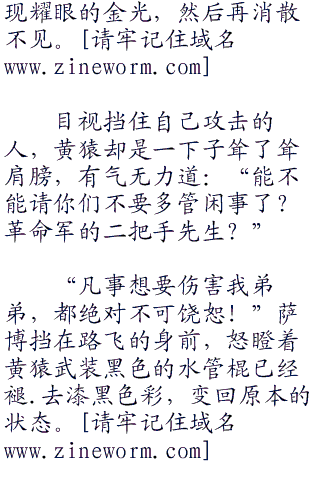 现耀眼的金光，然后再消散
不见。[请牢记住域名
www.zineworm.com]
目视挡住自己攻击的
人，黄猿却是一下子耸了耸
肩膀，有气无力道：“能不
能请你们不要多管闲事了？
革命军的二把手先生？”
“凡事想要伤害我弟
弟，都绝对不可饶恕！”萨
博挡在路飞的身前，怒瞪着
黄猿武装黑色的水管棍已经
褪.去漆黑色彩，变回原本的
状态。[请牢记住域名
www.zineworm.com]